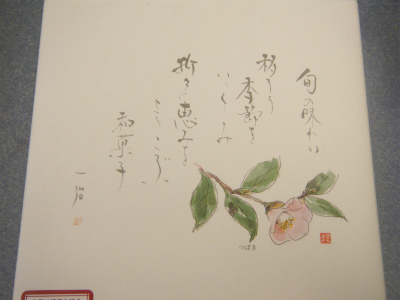 旬の味わい
移ろう
季節を
いつくしみ
折々の恵みを
よろこぶ
和菓子
一治
つばき